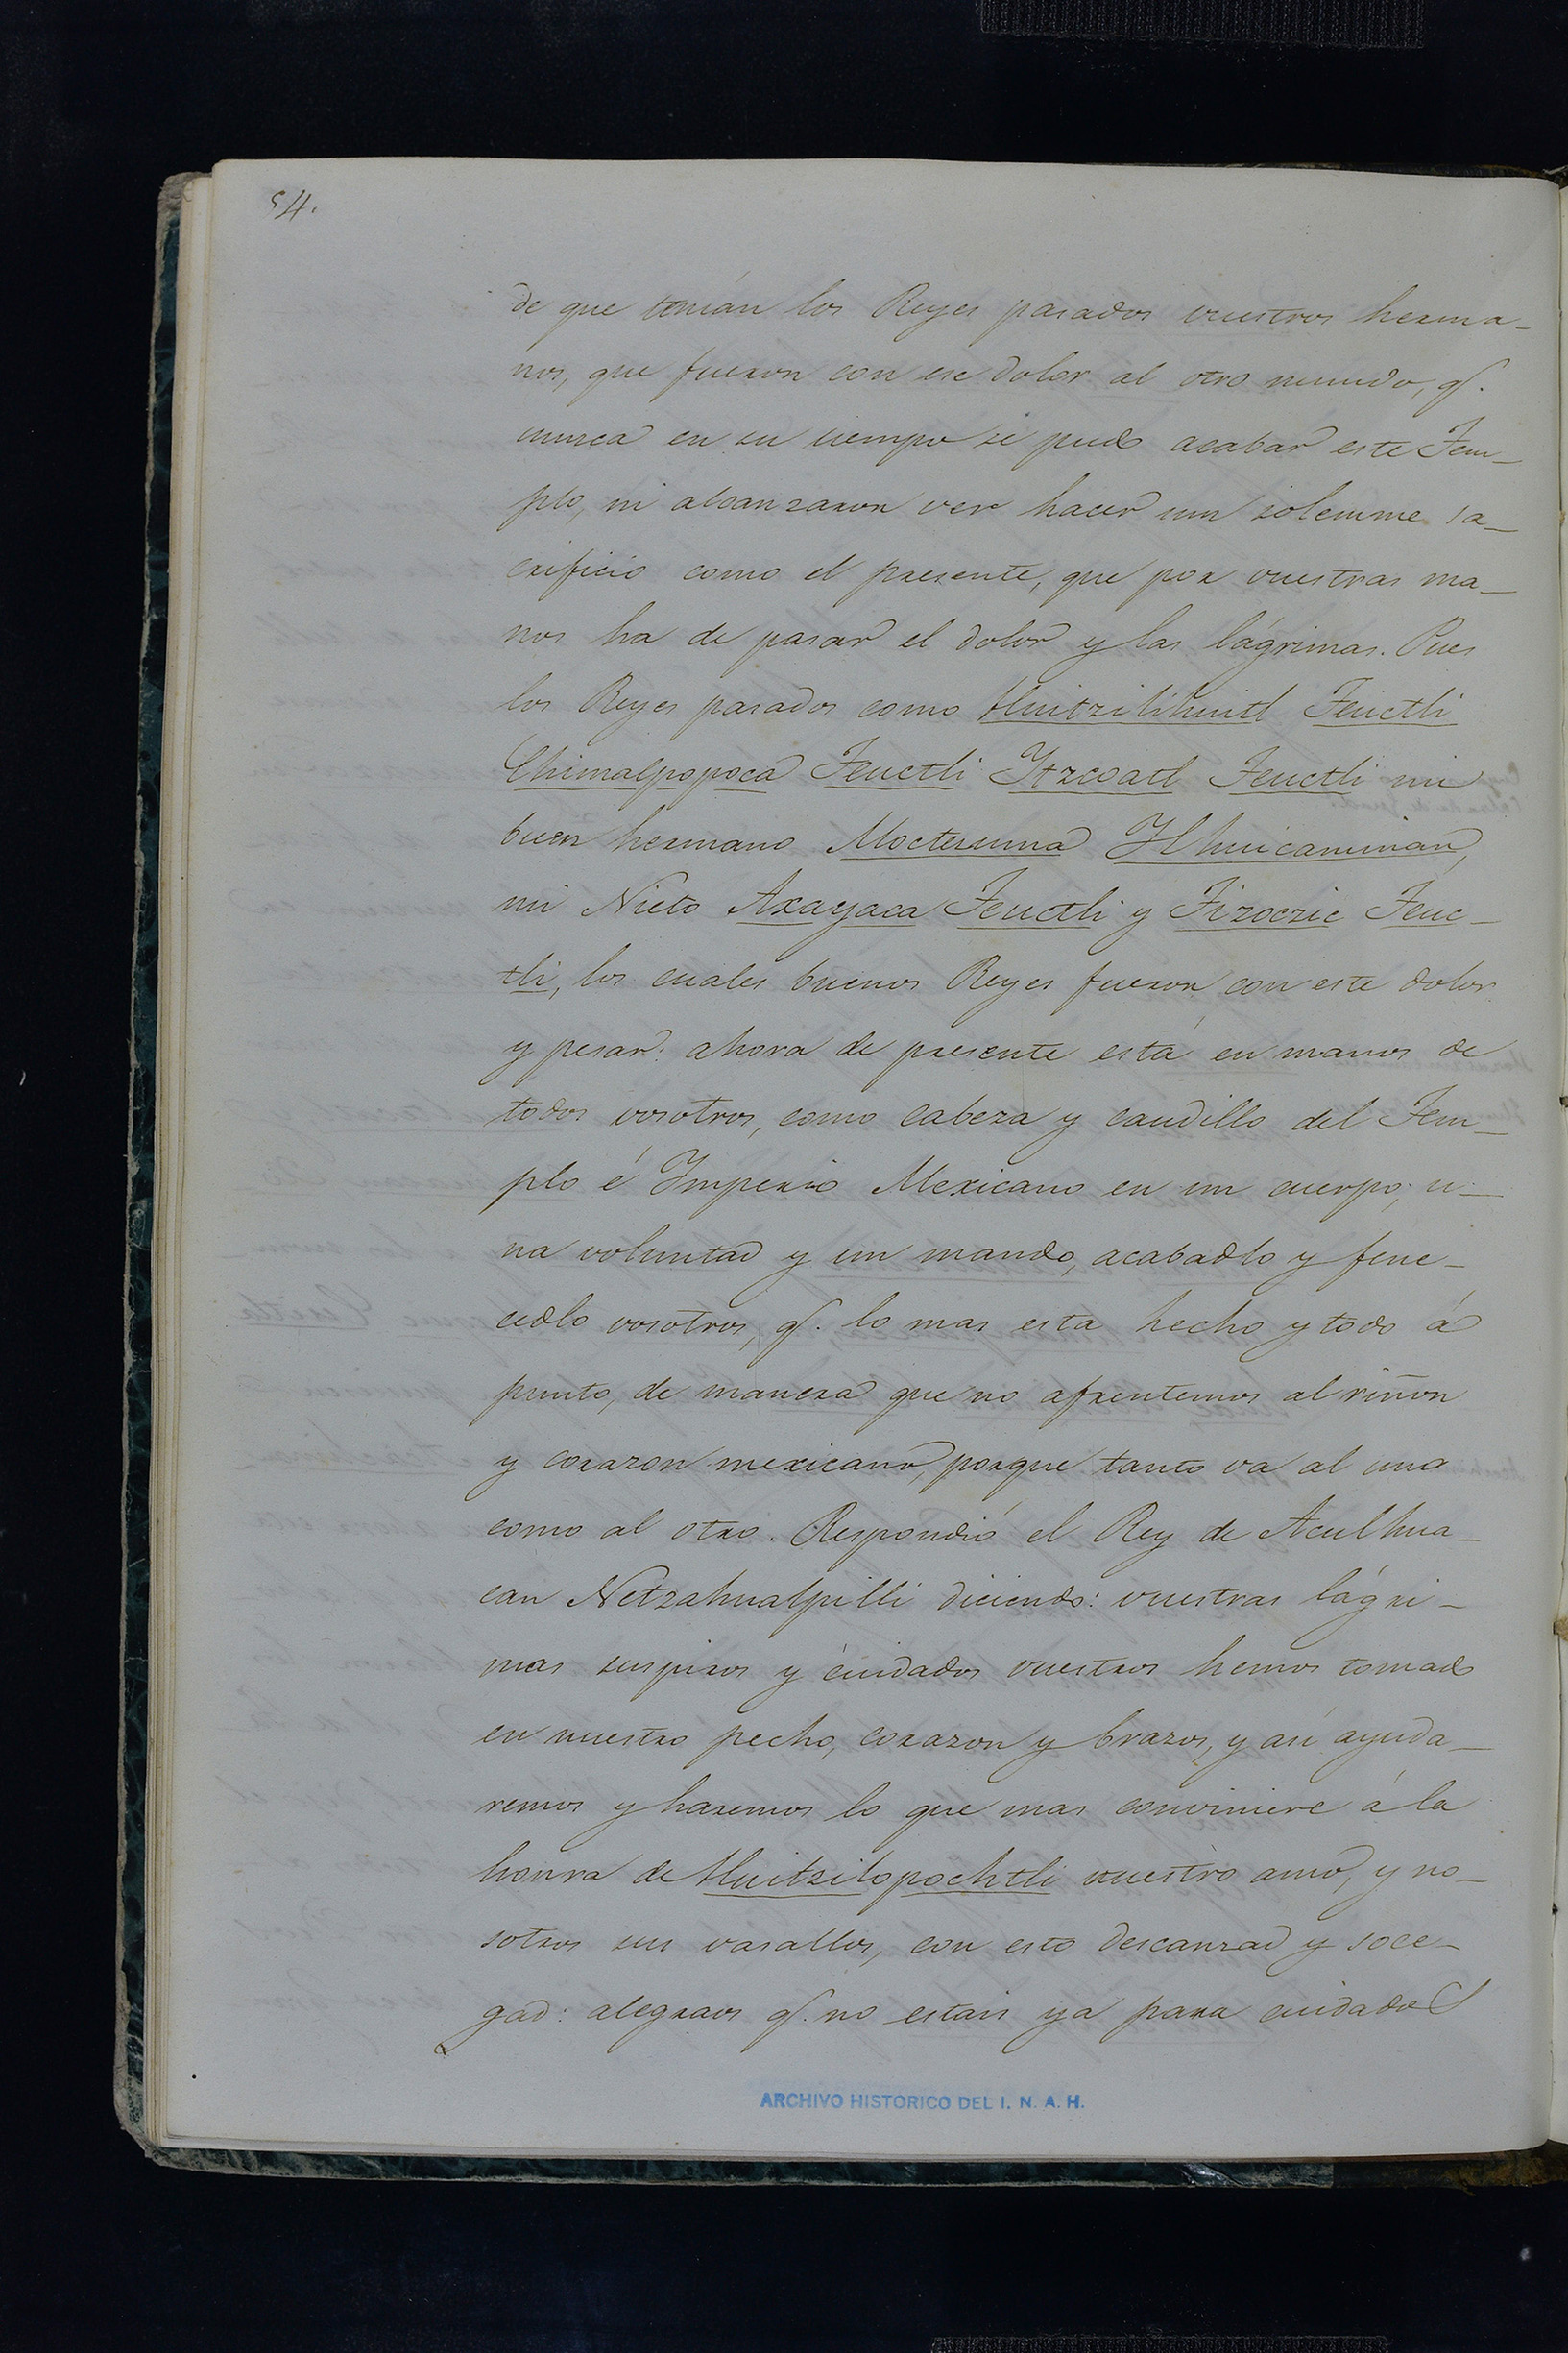 54.
de que tenían los Reyes pasados vuestros herma-
nos, que fueron con ese dolor al otro mundo, q.
nunca en su tiempo se pudo acabar este Tem-
plo, ni alcanzaron ver hacer un solemne sa-
crificio como el presente, que por vuestras ma-
nos ha de pasar el dolor y las lágrimas. Pues
los Reyes pasados como Huitzilihuitl Teuctli
Chimalpopoca Teuctli Ytzcoatl Teuctli mi
buen hermano Moctesuma Ylhuicaminan,
mi Nieto Axayaca Teuctli y Tizoczic Teuc-
tli, los cuales buenos Reyes fueron con este dolor
y pesar: ahora de presente está en manos de
todos vosotros, como cabeza y caudillo del Tem-
plo é Ymperio Mexicano en un cuerpo, u-
na voluntad y un mando, acabadlo y fene-
cedlo vosotros, q. lo mas esta hecho y todo á
punto, de manera que no afrentemos al riñon
y corazon mexicano, porque tanto va al uno
como al otro. Respondió el Rey de Aculhua-
can Netzahualpilli diciendo: vuestras lágri-
mas suspiros y cuidados vuestros hemos tomado
en nuestro pecho, corazon y brazos, y asi ayuda-
remos y haremos lo que mas conviniere á la
honra de Huitzilopochtli nuestro amo, y no-
sotros sus vasallos, con esto descanzad y soce-
gad: alegraos q. no estais ya para cuidados
ARCHIVO HISTORICO DEL I. N. A. H.